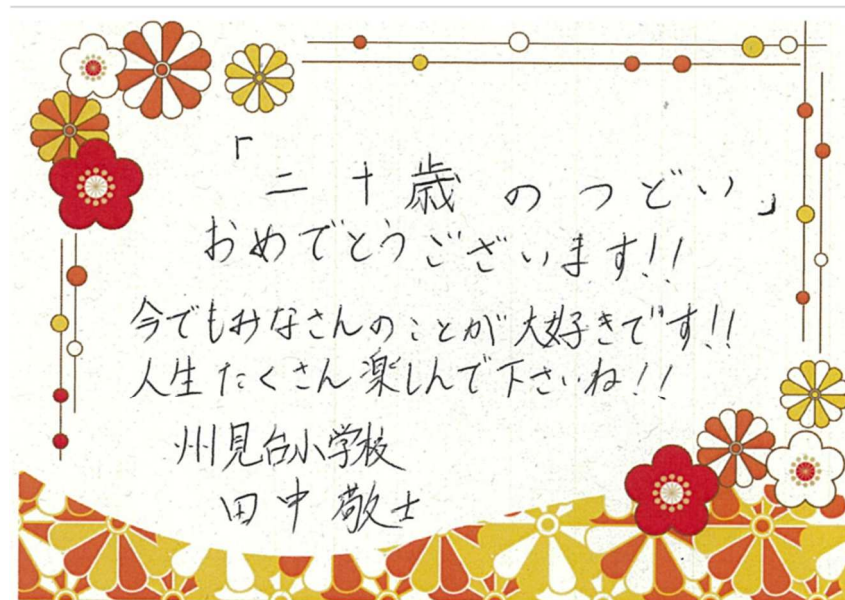 「二十歳のつどい」
おめでとうございます!!
今でもみなさんのことが大好きです!!
人生たくさん楽しんで下さいね!!
州見台小学校
田中敬士